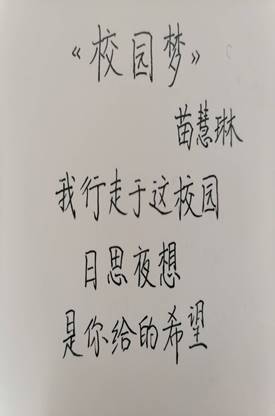 《校园梦》
苗慧琳
我行走于这校园
日思夜想
是你给的希望